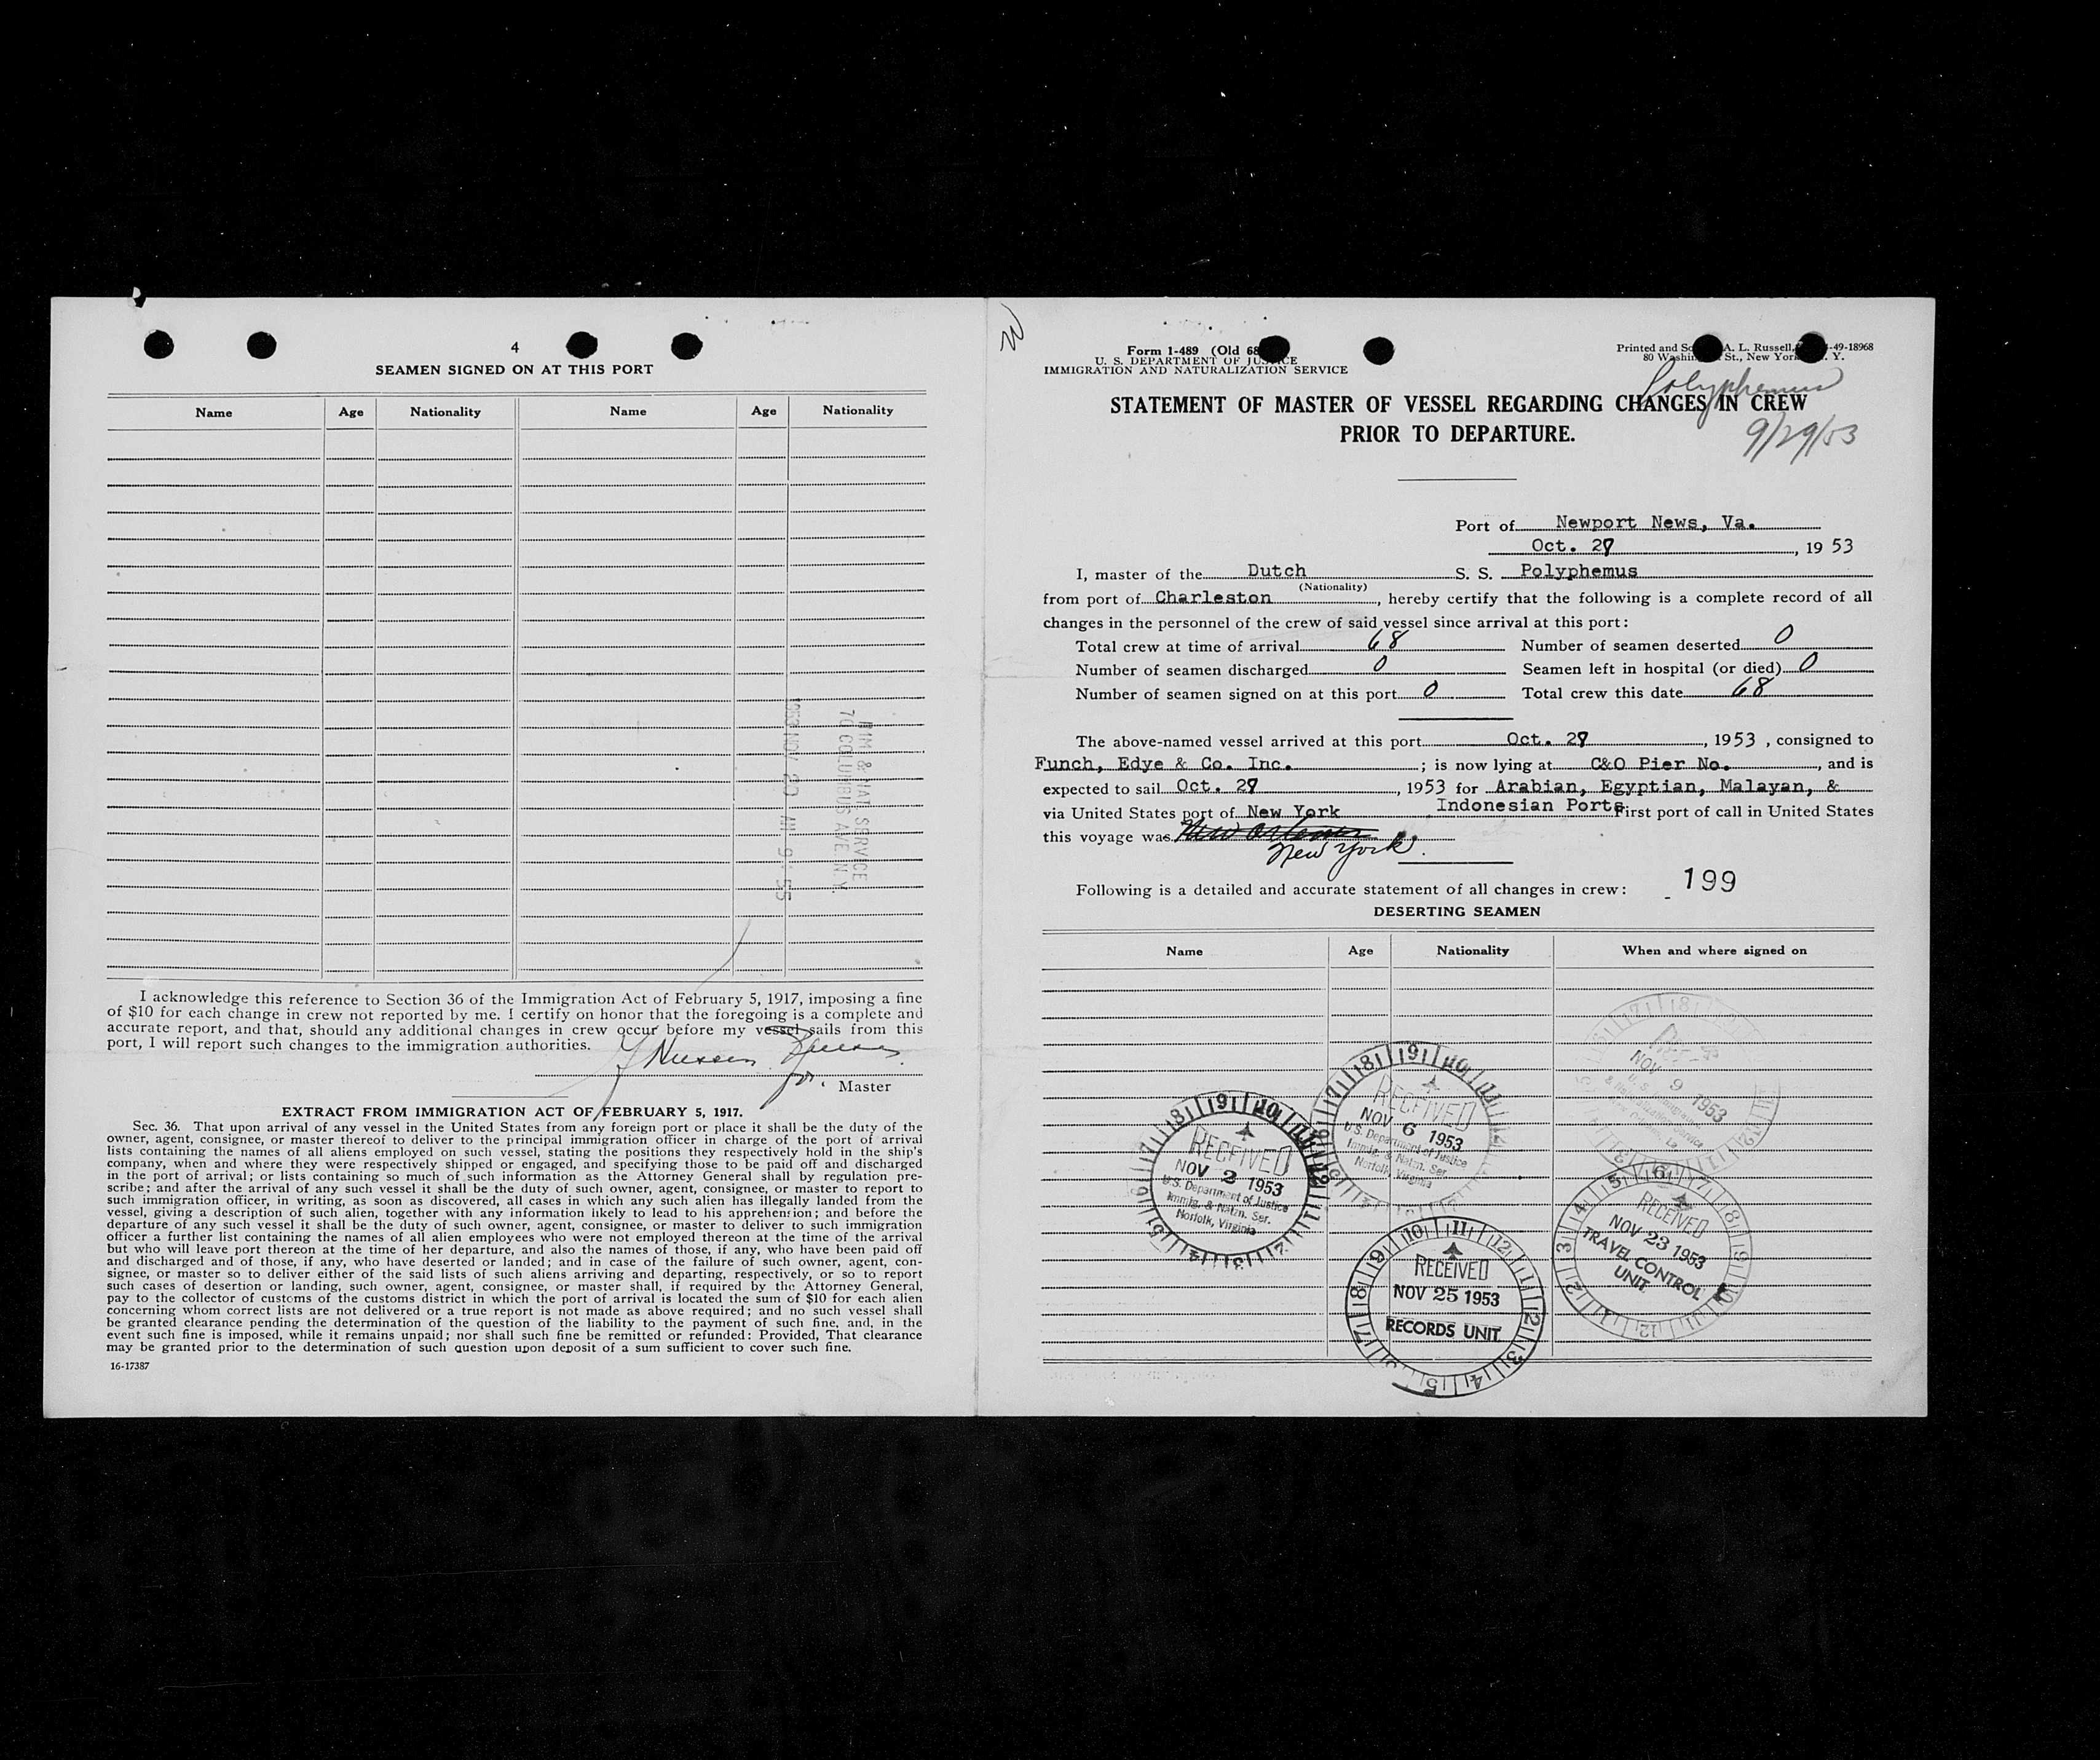 4
SEAMEN SIGNED ON AT THIS PORT
Name Age Nationality Name Age Nationality
IMM & NAT. SERVICE
70 COLUMBUS AVE. N.Y.
1953 NOV 20 AM 9 55
I acknowledge this reference to Section 36 of the Immigration Act of February 5, 1917, imposing a fine
of $10 for each change in crew not reported by me. I certify on honor that the foregoing is a complete and
accurate report, and that, should any additional changes in crew occur before my vessel sails from this
port, I will report such changes to the immigration authorities.
for. Master
EXTRACT FROM IMMIGRATION ACT OF FEBRUARY 5, 1917.
Sec. 36. That upon arrival of any vessel in the United States from any foreign port or place it shall be the duty of the
owner, agent, consignee, or master thereof to deliver to the principal immigration officer in charge of the port of arrival
lists containing the names of all aliens employed on such vessel, stating the positions they respectively hold in the ship's
company, when and where they were respectively shipped or engaged, and specifying those to be paid off and discharged
in the port of arrival; or lists containing so much of such information as the Attorney General shall by regulation pre-
scribe; and after the arrival of any such vessel it shall be the duty of such owner, agent, consignee, or master to report to
such immigration officer, in writing, as soon as discovered, all cases in which any such alien has illegally landed from the
vessel, giving a description of such alien, together with any information likely to lead to his apprehension; and before the
departure of any such vessel it shall be the duty of such owner, agent, consignee, or master to deliver to such immigration
officer a further list containing the names of all alien employees who were not employed thereon at the time of the arrival
but who will leave port thereon at the time of her departure, and also the names of those, if any, who have been paid off
and discharged and of those, if any, who have deserted or landed; and in case of the failure of such owner, agent, con-
signee, or master so to deliver either of the said lists of such aliens arriving and departing, respectively, or so to report
such cases of desertion or landing, such owner, agent, consignee, or master shall, if required by the Attorney General,
pay to the collector of customs of the customs district in which the port of arrival is located the sum of $10 for each alien
concerning whom correct lists are not delivered or a true report is not made as above required; and no such vessel shall
be granted clearance pending the determination of the question of the liability to the payment of such fine, and, in the
event such fine is imposed, while it remains unpaid; nor shall such fine be remitted or refunded: Provided, That clearance
may be granted prior to the determination of such question upon deposit of a sum sufficient to cover such fine.
16-17387
Form I-489 (Old 68
U. S. DEPARTMENT OF JUSTICE
IMMIGRATION AND NATURALIZATION SERVICE
Printed and So A. L. Russell, -49-18968
80 Washin St., New York . Y.
Polyphemus
9/29/53
STATEMENT OF MASTER OF VESSEL REGARDING CHANGES IN CREW
PRIOR TO DEPARTURE.
Port of Newport News, Va.
Oct. 27, 19 53
I, master of the Dutch S. S. Polyphemus
(Nationality)
from port of Charleston, hereby certify that the following is a complete record of all
changes in the personnel of the crew of said vessel since arrival at this port:
Total crew at time of arrival 68 Number of seamen deserted 0
Number of seamen discharged 0 Seamen left in hospital (or died) 0
Number of seamen signed on at this port 0 Total crew this date 68
The above-named vessel arrived at this port Oct. 27, 1953, consigned to
Funch, Edye & Co. Inc.; is now lying at C&O Pier No., and is
expected to sail Oct. 27, 1953 for Arabian, Egyptian, Malayan, &
via United States port of New York Indonesian Ports First port of call in United States
this voyage was New Orleans
New York.
Following is a detailed and accurate statement of all changes in crew: 199
DESERTING SEAMEN
Name Age Nationality When and where signed on
NOV 9 1953
RECEIVED
NOV 6 1953
U.S. Department of Justice
Immig. & Natzn. Ser.
Norfolk, Virginia
RECEIVED
NOV 2 1953
U.S. Department of Justice
Immig. & Natzn. Ser.
Norfolk, Virginia
RECEIVED
NOV 23 1953
TRAVEL CONTROL
UNIT
RECEIVED
NOV 25 1953
RECORDS UNIT